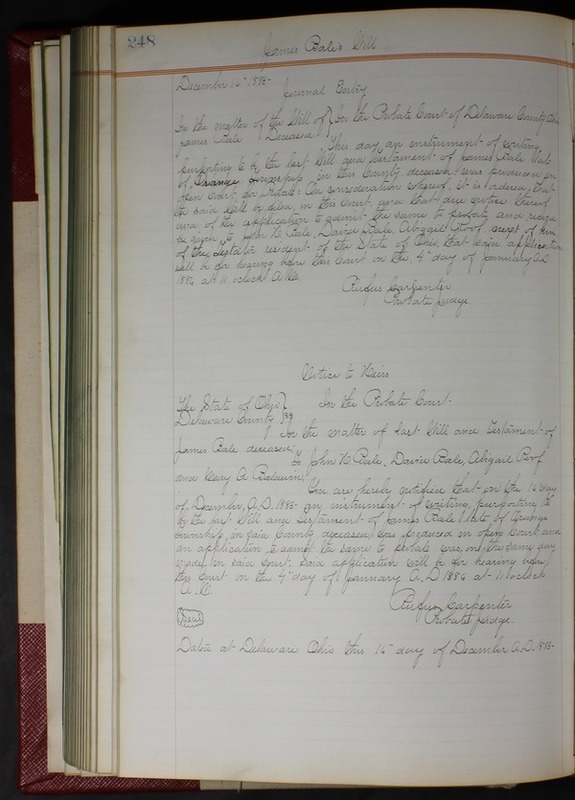 248
James Bale's Will
December 15th 1885-
Journal Entry
In the matter of the Will of } In the Probate Court of Delaware County Ohio
James Bale Deceased } This day an instrument of writing,
purporting to be the last Will and Testament of James Bale late
of Orange township in this County deceased was produced in
open Court for Probate: On consideration whereof, it is ordered that
the said Will be filed in this Court and that due notice thereof
and of the application to admit the same to probate and record
be given to John H. Bale, David Bale, Abigail next of kin
of the testator resident of the State of Ohio, that said application
will be for hearing before this Court on the 4th day of January A.D.
1886 at 11 o'clock A.M.
Rufus Carpenter
Probate Judge.
Notice to Heirs
The State of Ohio } In the Probate Court.
Delaware County } ss
In the matter of Last Will and Testament of
James Bale deceased;
To John H. Bale, David Bale, Abigail
and Mary A. Baldwin;
You are hereby notified that on the 15 day
of December, A.D. 1885- an instrument of writing purporting to
be the last Will and Testament of James Bale late of Orange
township in said County deceased, was produced in open Court and
an application to admit the same to probate was, on the same day
made in said Court. Said application will be for hearing before
this Court on the 4th day of January A.D. 1886 at 11 o'clock
A.M.
Rufus Carpenter
Probate Judge.
Seal
Dated at Delaware Ohio this 15 day of December A.D. 1885-